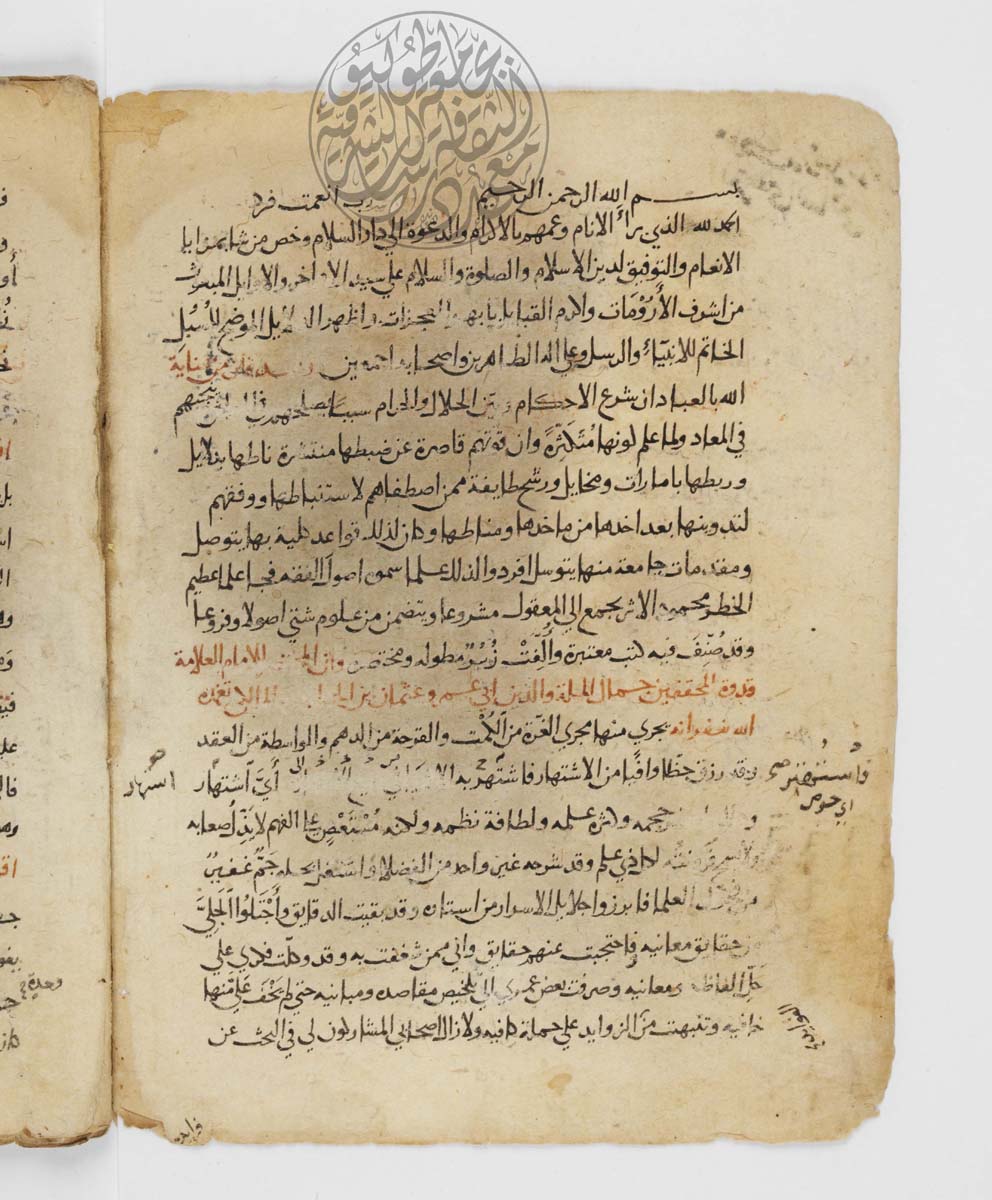 بسم الله الرحمن الرحيم رب انعمت فزد
الحمد لله الذي برأ الانام وعمهم بالاكرام والدعوة الي دار السلام وخص من شا بمزايا
الانعام والتوفيق لدين الاسلام والصلوة والسلام علي سيد الاواخر والاوايل المبعوث
من اشرف الأرومات واكرم القبايل بابهر المعجزات واظهر الدلايل الموضح للسبل
الخاتم للانبيآء والرسل وعلي اله الطاهرين واصحابه اجمعين فان من عناية
الله بالعباد ان شرع الاحكام وبين الحلال والحرام سببا يصلحهم وينجيهم
في المعاد ولما علم كونها متكثرة وان قوتهم قاصرة عن ضبطها منتشرة ناطها بدلايل
وربطها بامارات ومخايل ورشح طايفة ممن اصطفاهم لاستنباطها ووفقهم
لتدوينها بعد اخدها من ماخدها ومناطها وكان لذلك قواعد كلية بها يتوصل
ومقدمات جامعة منها يتوسل افردوا لذلك علما سموه اصول الفقه فجا علما عظيم
الخطر محمود الاثر يجمع الي المعقول مشروعا ويتضمن من علوم شتي اصولا وفروعا
وقد صُنِّفَ فيه كتب معتبرة وأُلِّفَتْ زُبُرٌ مطوله ومختصره وان المختصر للامام العلامة
قدوة المحققين جمال الملة والدين ابي عمرو عثمان بن الحاجب المالكي تغمده
الله بغفرانه يجري منها مجري الغرة من الكُمْت والقرحة من الدهم والواسطة من العقد
وقد رزق حظا وافيا من الاشتهار فاشتهر به أيَّ اشتهار
حجمه وكثرة علمه ولطافة نظمه ولكنه مُسْتَعْصٍ علي الفهم لا يذل صعابه
ولا يسمح قرونته لكل ذي علم وقد شرحه غير واحد من الفضلا واشتغل بحله جَمٌّ غفيرٌ
من العلما فابرزوا جلايل الاسرار من استاره وقد بقيت الدقايق وأَجْتَلَوُا الجَلِيَّ
من حقايق معانيه واحتجبت عنهم حقايق واني ممن شغفت به وقد وكلت فكري علي
حلّ الفاظه ومعانيه وصرفت بعض عمري الي تلخيص مقاصده ومبانيه حتي لم يَخْفَ عَليَّ منها
خافيه وتنبهت من الزوايد علي جملة كافيه ولا زال اصحابي المشاركون لي في البحث عن
فاستهتر صح
اي حرص
اشتهار
وحدي